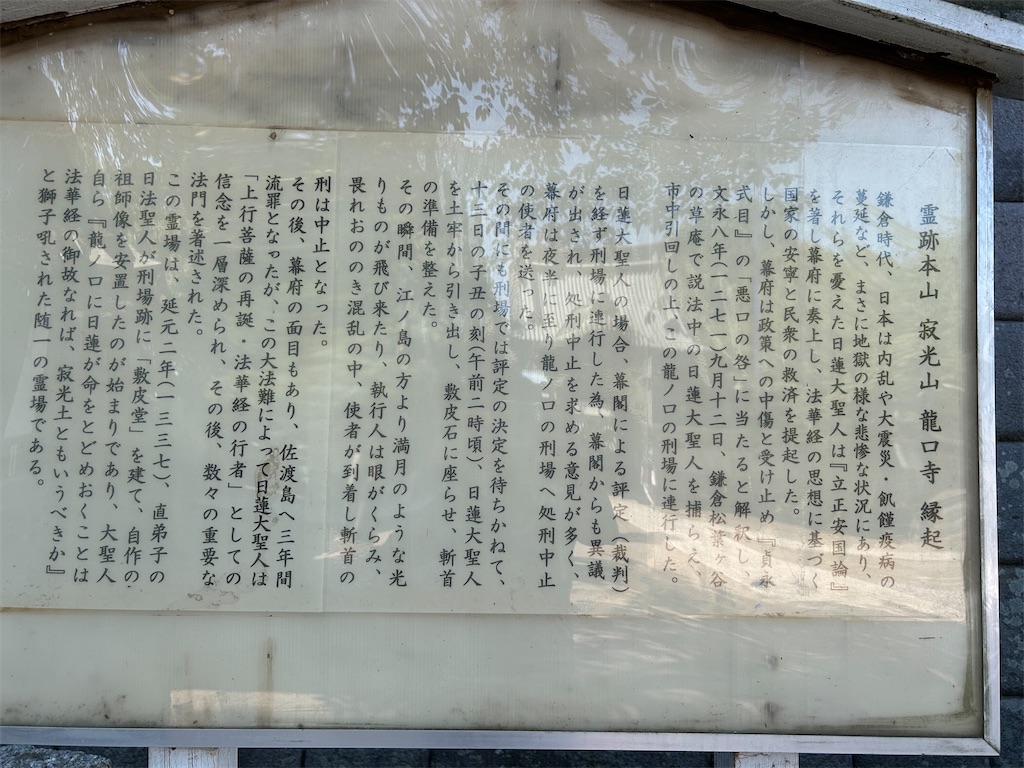 霊跡本山 寂光山 龍口寺 縁起
鎌倉時代、日本は内乱や大震災・飢饉疫病の
蔓延など、まさに地獄の様な悲惨な状況にあり、
それらを憂えた日蓮大聖人は『立正安国論』
を著し幕府に奏上し、法華経の思想に基づく
国家の安寧と民衆の救済を提起した。
しかし、幕府は政策への中傷と受け止め『貞永
式目』の「悪口の咎」に当たると解釈し、
文永八年(一二七一)九月十二日、鎌倉松葉ヶ谷
の草庵で説法中の日蓮大聖人を捕らえ、
市中引回しの上、この龍ノ口の刑場に連行した。
日蓮大聖人の場合、幕閣による評定(裁判)
を経ず刑場に連行した為、幕閣からも異議
が出され、処刑中止を求める意見が多く、
幕府は夜半に至り龍ノ口の刑場へ処刑中止
の使者を送った。
その間にも刑場では評定の決定を待ちかねて、
十三日の子丑の刻(午前二時頃)、日蓮大聖人
を土牢から引き出し、敷皮石に座らせ、斬首
の準備を整えた。
その瞬間、江ノ島の方より満月のような光
りものが飛び来たり、執行人は眼がくらみ、
畏れおののき混乱の中、使者が到着し斬首の
刑は中止となった。
その後、幕府の面目もあり、佐渡島へ三年間
流罪となったが、この大法難によって日蓮大聖人は
「上行菩薩の再誕・法華経の行者」としての
信念を一層深められ、その後、数々の重要な
法門を著述された。
この霊場は、延元二年(一三三七)、直弟子の
日法聖人が刑場跡に「敷皮堂」を建て、自作の
祖師像を安置したのが始まりであり、大聖人
自ら『龍ノ口に日蓮が命をとどめおくことは
法華経の御故なれば、寂光土ともいうべきか』
と獅子吼された随一の霊場である。